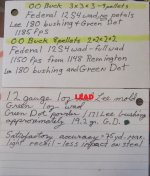 OO Buck 3x3x3 - 9 pellets
Federal 12S4 wad no petals
Lee 180 bushing & Green Dot
1185 FPS
OO Buck 8 pellets 2+2+2+2
Federal 12S4 wad - full wad
1150 fps from 1148 Remington
Lee 180 bushing and Green Dot
12 gauge 1oz LEAD Lee mold
Green 1oz wad
Green Dot powder / .171 Lee bushing
approximately 19.2 gr. G.D.
Satisfactory accuracy - 75 yd. max
light recoil - less impact on steel